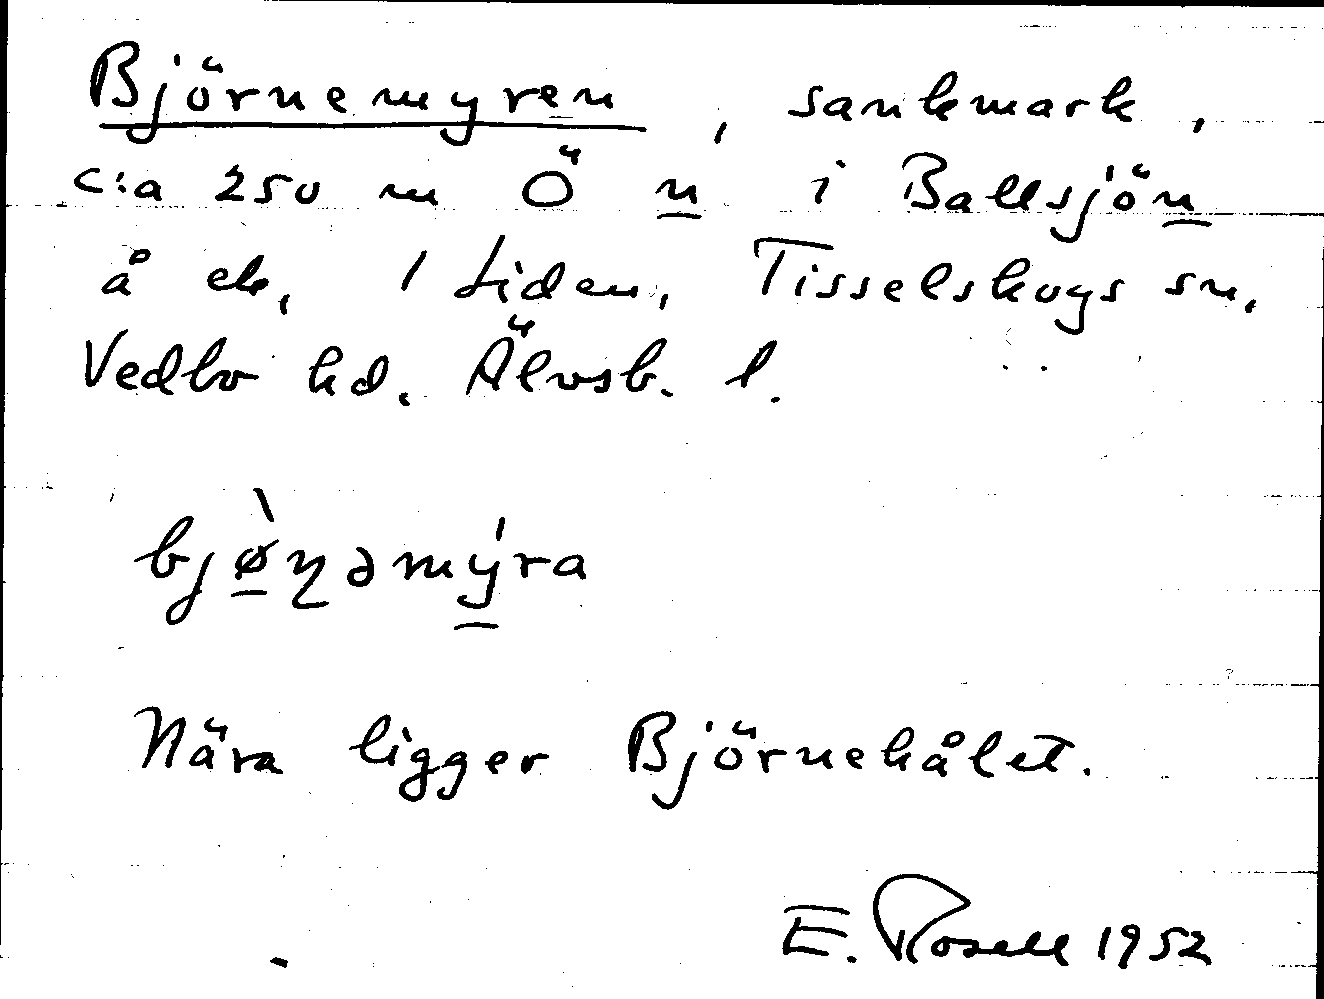 Björnemyren, sankmark,
c:a 250 m Ö n i Ballsjön
å ek, 1 Liden, Tisselskogs sn.
Vedbo hd. Älvsb. l.
bjø̀ɳəmýra
Nära ligger Björnehålet.
E. Rosell 1952